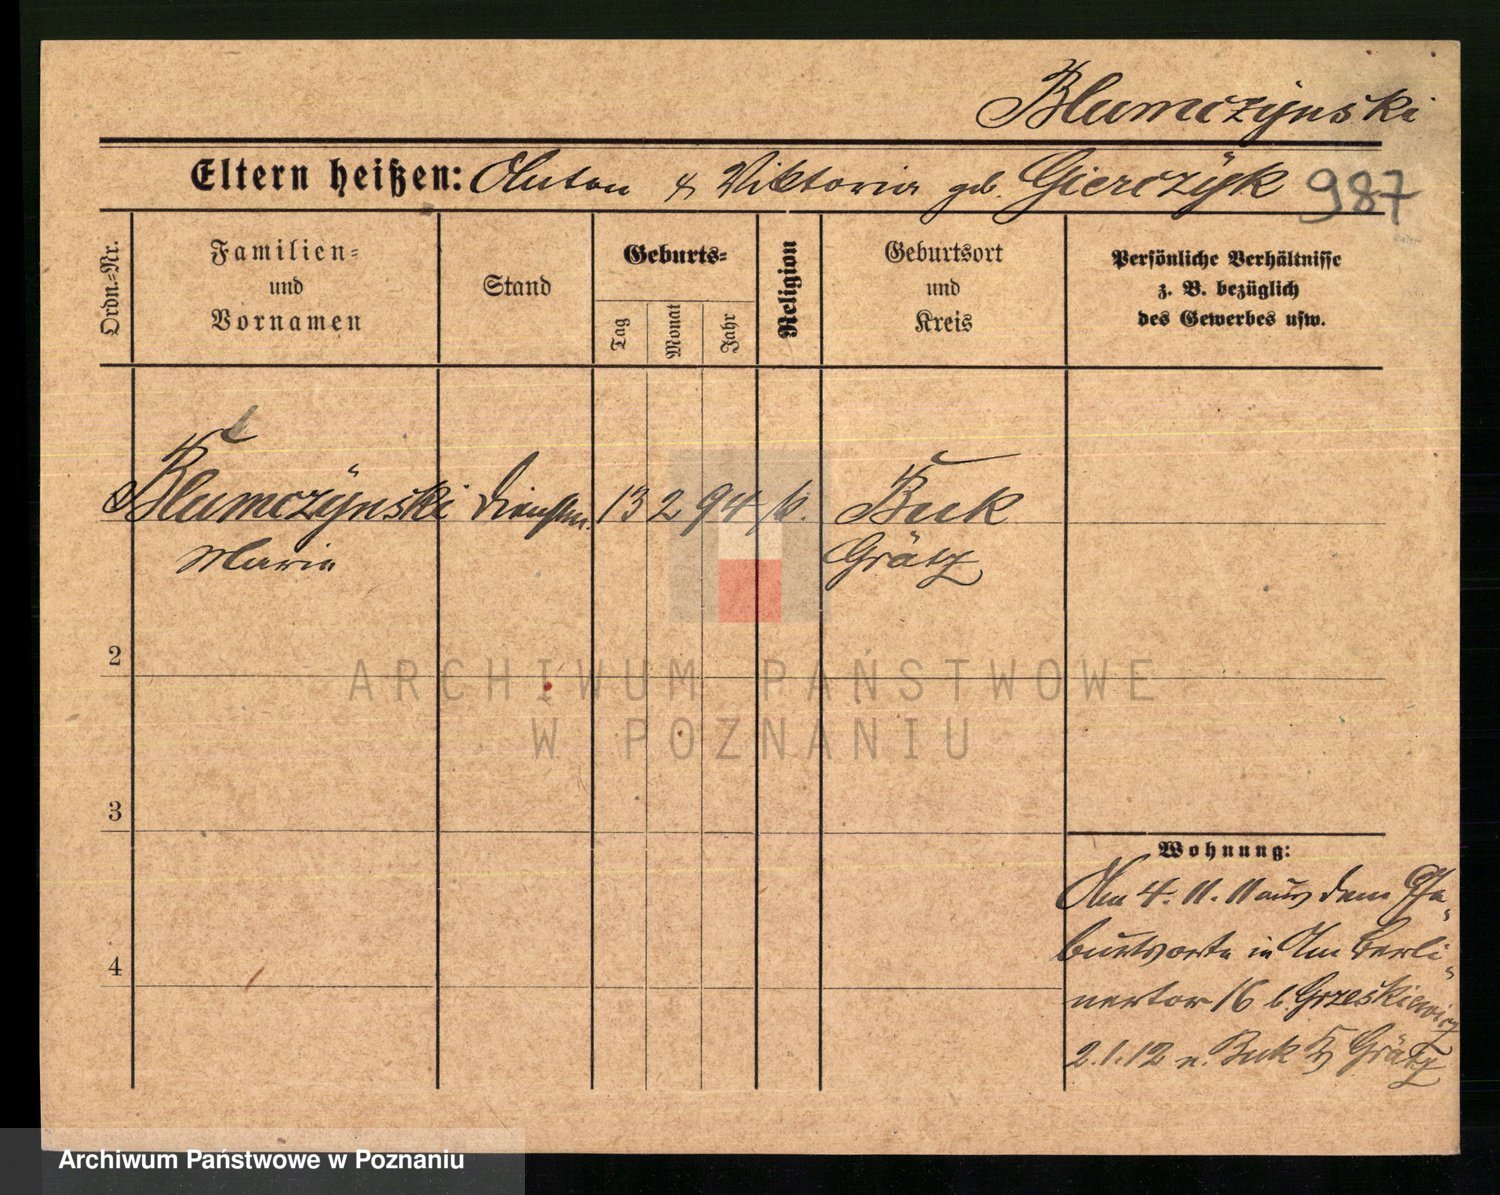 Blumczÿnski
Eltern heißen: Anton & Viktoria geb. Gierczÿk 987
Ordn.-Nr.
Familien-
und
Vornamen
Stand
Geburts-
Tag
Monat
Jahr
Religion
Geburtsort
und
Kreis
Persönliche Verhältnisse
z. B. bezüglich
des Gewerbes usw.
Blumczÿnski Dienstm. 13 2 94 k. Buk
Marie Grätz
2
3
4
Wohnung:
Am 4. 11. 11 aus dem Ge-
burtsorte in Am Berli-
nertor 16 b. Grzeskiewicz
2.1.12 n. Buk Kr Grätz
ARCHIWUM PAŃSTWOWE
W POZNANIU
Archiwum Państwowe w Poznaniu